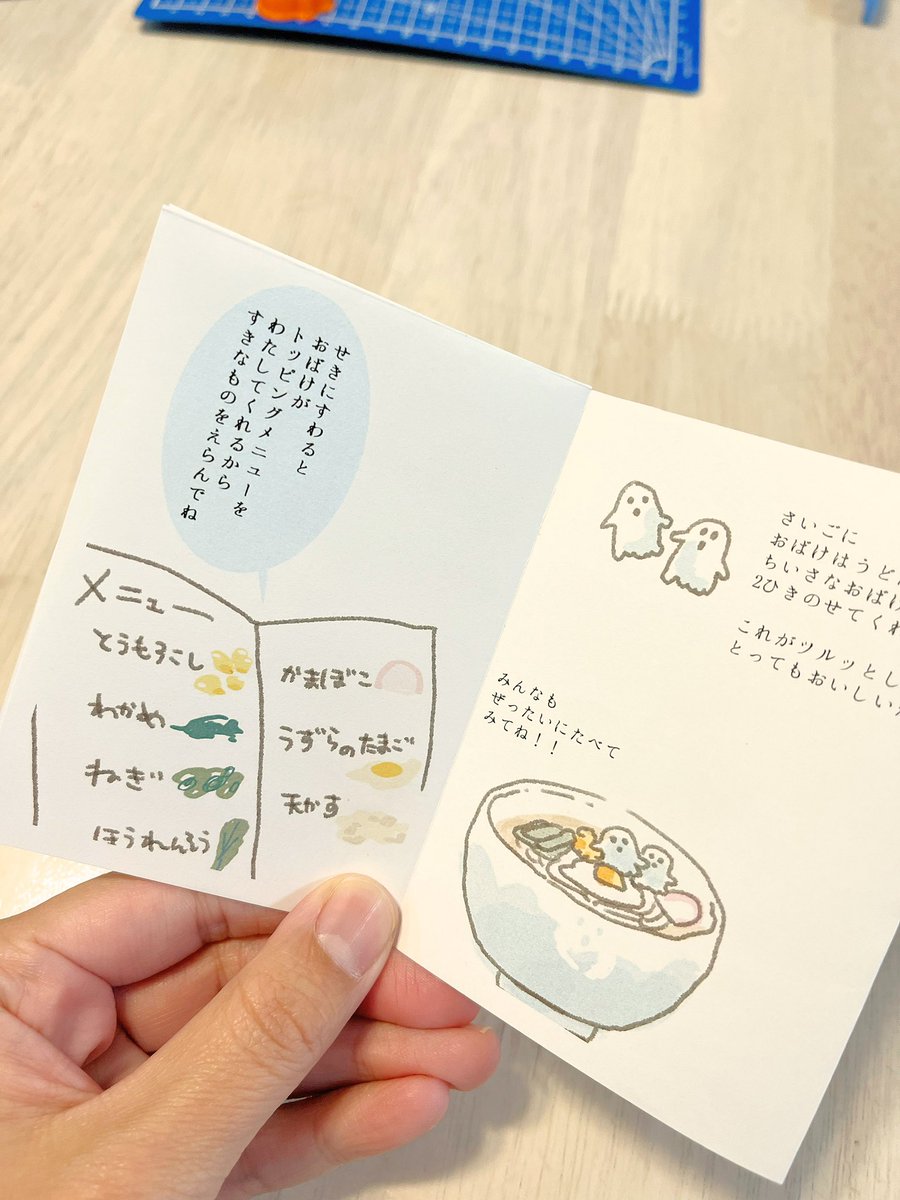 せきにすわると
おばけが
トッピングメニューを
わたしてくれるから
すきなものをえらんでね
メニュー
とうもろこし
わかめ
ねぎ
ほうれんそう
かまぼこ
うずらのたまご
天かす
さいごに
おばけはうど
ちいさなおばけ
2ひきのせてくれ
これがツルッとし
とってもおいしい
みんなも
ぜったいにたべて
みてね！！